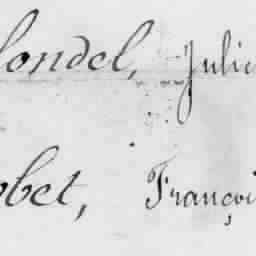 londel, Julie
obet, Françoi